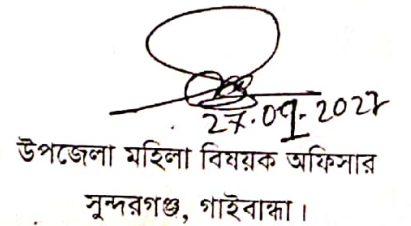 27.09.2027
উপজেলা মহিলা বিষয়ক অফিসার
সুন্দরগঞ্জ, গাইবান্ধা।